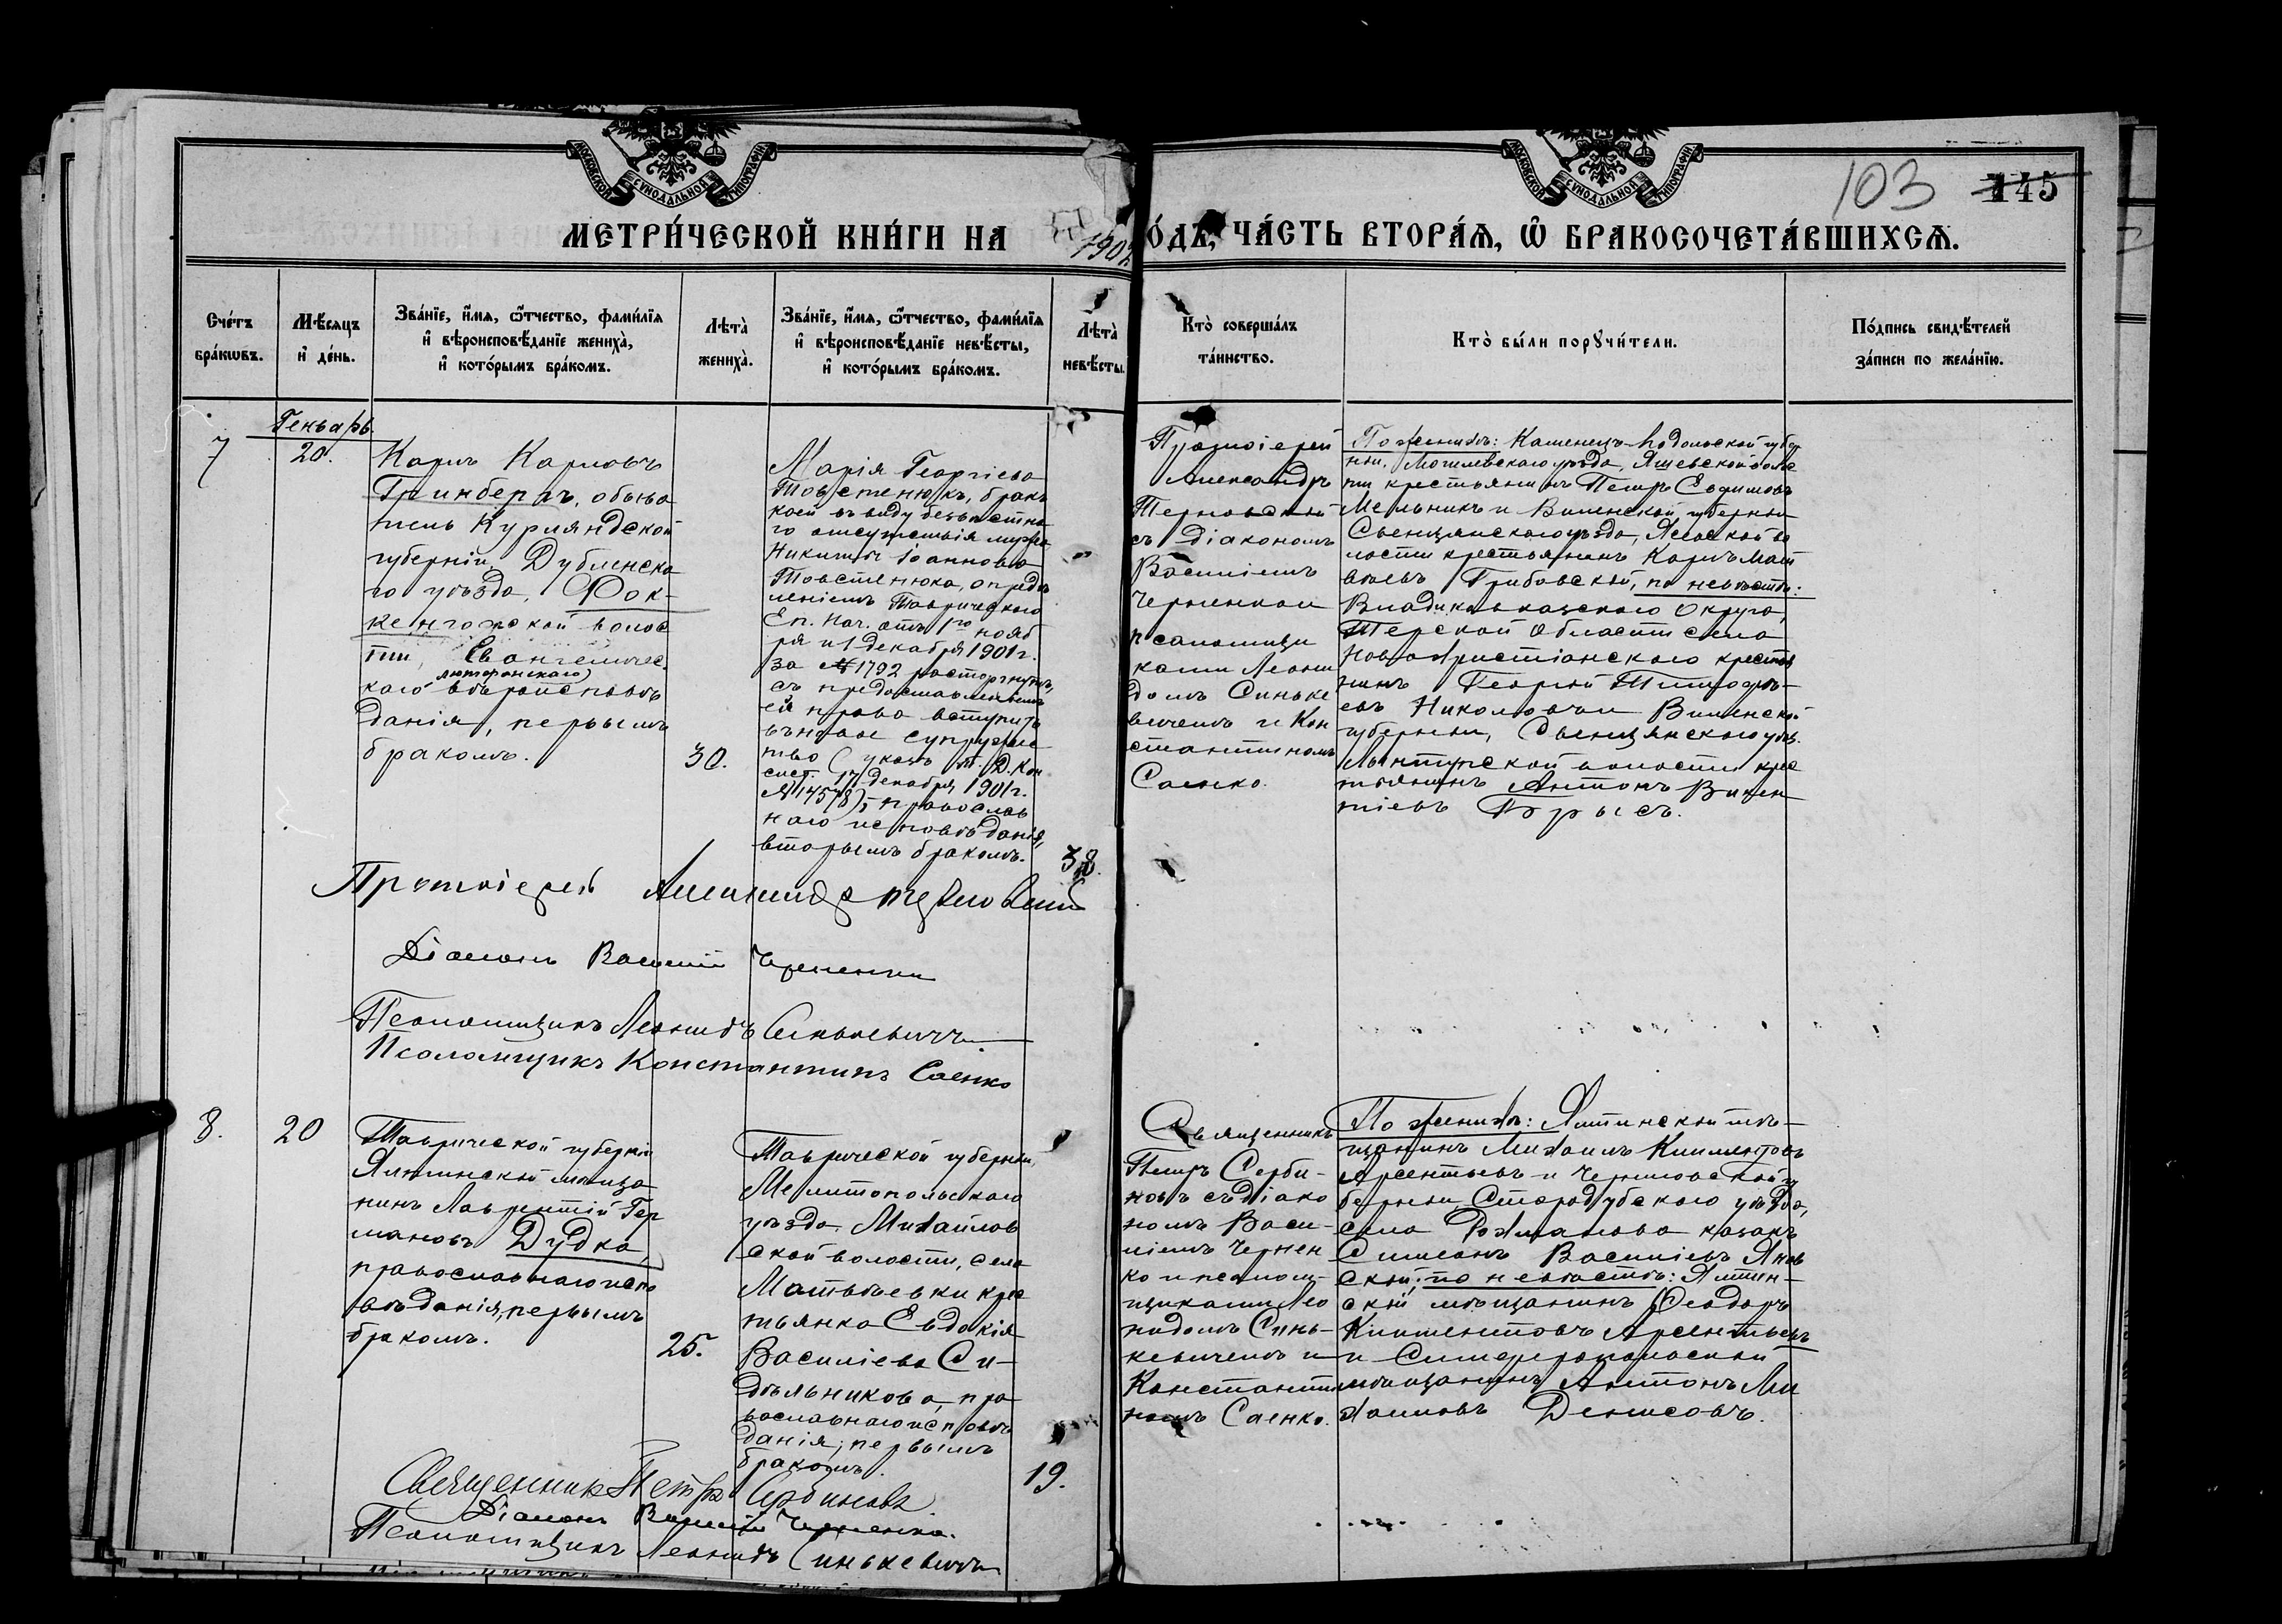 МОСКОВСКОЙ СѴНОДАЛЬНОЙ ТИПОГРАФІИ
МОСКОВСКОЙ СѴНОДАЛЬНОЙ ТИПОГРАФІИ
103 145
МЕТРИ́ЧЕСКОЙ КНИ́ГИ НА 190
О́ДЪ, ЧА́СТЬ ВТОРА́Я, Ѡ БРАКОСОЧЕТА́ВШИХСѦ.
Сче́тъ
бра́кѡвъ.
Мѣ́сяцъ
и҆ де́нь.
Зва́нїе, и҆́мя, ѻ҆́тчество, фамі́лїя
и҆ вѣроисповѣ́данїе жениха̀,
и҆ кото́рымъ бра́комъ.
Лѣта̀
жениха̀.
Зва́нїе, и҆́мя, ѻ҆́тчество, фамі́лїя
и҆ вѣроисповѣ́данїе невѣ́сты,
и҆ кото́рымъ бра́комъ.
Лѣта̀
невѣ́сты.
Кто̀ соверша́лъ
та́инство.
Кто̀ бы́ли порꙋчи́тели.
По́дпись свидѣ́телей
за́писи по жела́нїю.
7
Геньварь
20.
Карлъ Карловъ
Гринбергъ, обыва
тель Курляндской
губерніи, Дубленска
го уѣзда, Фок-
кенгофской волос
ти, Евангеличес
лютеранскаго
каго вѣроисповѣ
данія, первымъ
бракомъ.
30.
Марія Георгіева
Товстенюкъ, бракъ
коей въ виду безвѣстна
го отсутствія мужа
Никиты Іоаннова
Товстенюка, опредѣ
леніемъ Таврическаго
Еп. Нач. отъ нояб
ря и 1 декабря 1901 г.
за № 1792 расторгнутъ,
съ предоставленіемъ
ей права вступить
въ новое супружес
тво (указъ Т. Д. Кон
сист. 17 декабря 1901 г.
№ 14578), православ
наго исповѣданія,
вторымъ бракомъ.
38.
Протоіерей
Александръ
Терновскій
съ діакономъ
Василіемъ
Черненкои
псаломщи
ками Леони
домъ Синьке
вичемъ и Кон
стантиномъ
Саенко.
По женихѣ: Каменецъ-Подольской губер
ніи, Могилевскаго уѣзда, волос
ти крестьянинъ Петръ Евфимовъ
Мельникъ и Виленской губерніи
Свенцянскаго уѣзда, во
лости крестьянинъ Карлъ Мат
вѣевъ Грибовскій, по невѣстѣ:
Владикавказскаго Округа,
Терской Области села
Новохристіанскаго крестья
нинъ Георгій Тимофѣ-
евъ и Виленской
губерніи, Свенцянскаго уѣз.
волости крес
тьянинъ Антонъ Викен
тіевъ Брысъ.
Протоіерей Александръ Терновскій
Діаконъ Василій Черненко
Псаломщикъ Леонидъ Синькевичъ
Псаломщикъ Константинъ Саенко
8.
20
Таврической губерніи
Ялтинскій мѣща
нинъ Лаврентій Гер
мановъ Дудка,
православнаго испо
вѣданія, первымъ
бракомъ.
25.
Таврической губерніи,
Мелитопольскаго
уѣзда Михайлов
ской волости, села
Матвѣевки крес
тьянка Евдокія
Василіева Си-
дѣльникова, пра
вославнаго исповѣ
данія, первымъ
бракомъ.
19.
Священникъ
Петръ Серби-
новъ съ діако
номъ Васи-
ліемъ Чернен
ко и псалом-
щиками Лео
нидомъ Синь-
кевичемъ и
Константи
номъ Саенко.
По женихѣ: Ялтинскій мѣ-
щанинъ Михаилъ Климентовъ
Арсентьевъ и Черниговской гу
берніи, Стародубскаго уѣзда,
села казакъ
Симеонъ Василіевъ Янов
скій; по невѣстѣ: Ялтин-
скій мѣщанинъ Ѳеодоръ
Климентовъ Арсентьевъ
и Симферопольскій
мѣщанинъ Антонъ Ми
хаиловъ Денисовъ.
Священникъ Петръ Сербиновъ
Діаконъ Василій Черненко.
Псаломщикъ Леонидъ Синькевичъ